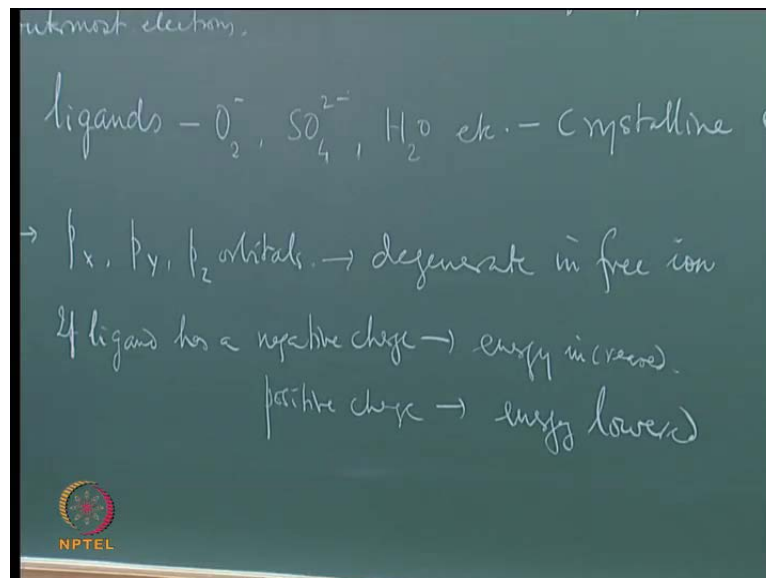 outermost electrons.
ligands – O₂⁻, SO₄²⁻, H₂O etc. – Crystalline
→ pₓ, pᵧ, p_z orbitals. → degenerate in free ion
If ligand has a negative charge → energy increased.
positive charge → energy lowered
NPTEL